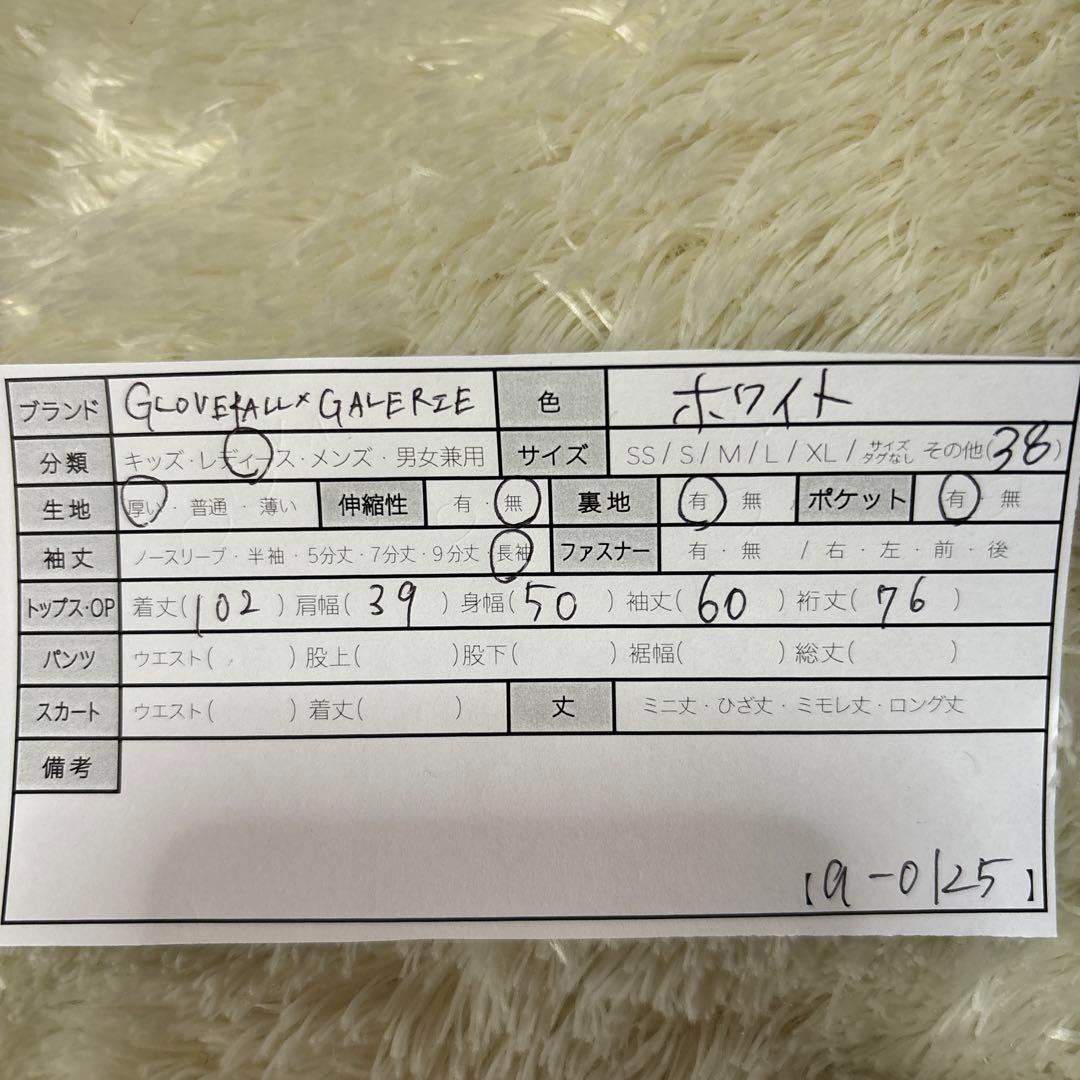 ブランド GLOVEfALL× GALERIE 色 ホワイト
分類 キッズ・レディース・メンズ・男女兼用 サイズ SS / S / M / L / XL / サイズタグなし その他(38)
生地 厚い・普通・薄い 伸縮性 有・無 裏地 有・無 ポケット 有・無
袖丈 ノースリーブ・半袖・5分丈・7分丈・9分丈・長袖 ファスナー 有・無 / 右・左・前・後
トップス・OP 着丈(102) 肩幅(39) 身幅(50) 袖丈(60) 裄丈(76)
パンツ ウエスト( ) 股上( ) 股下( ) 裾幅( ) 総丈( )
スカート ウエスト( ) 着丈( ) 丈 ミニ丈・ひざ丈・ミモレ丈・ロング丈
備考
【a-0125】